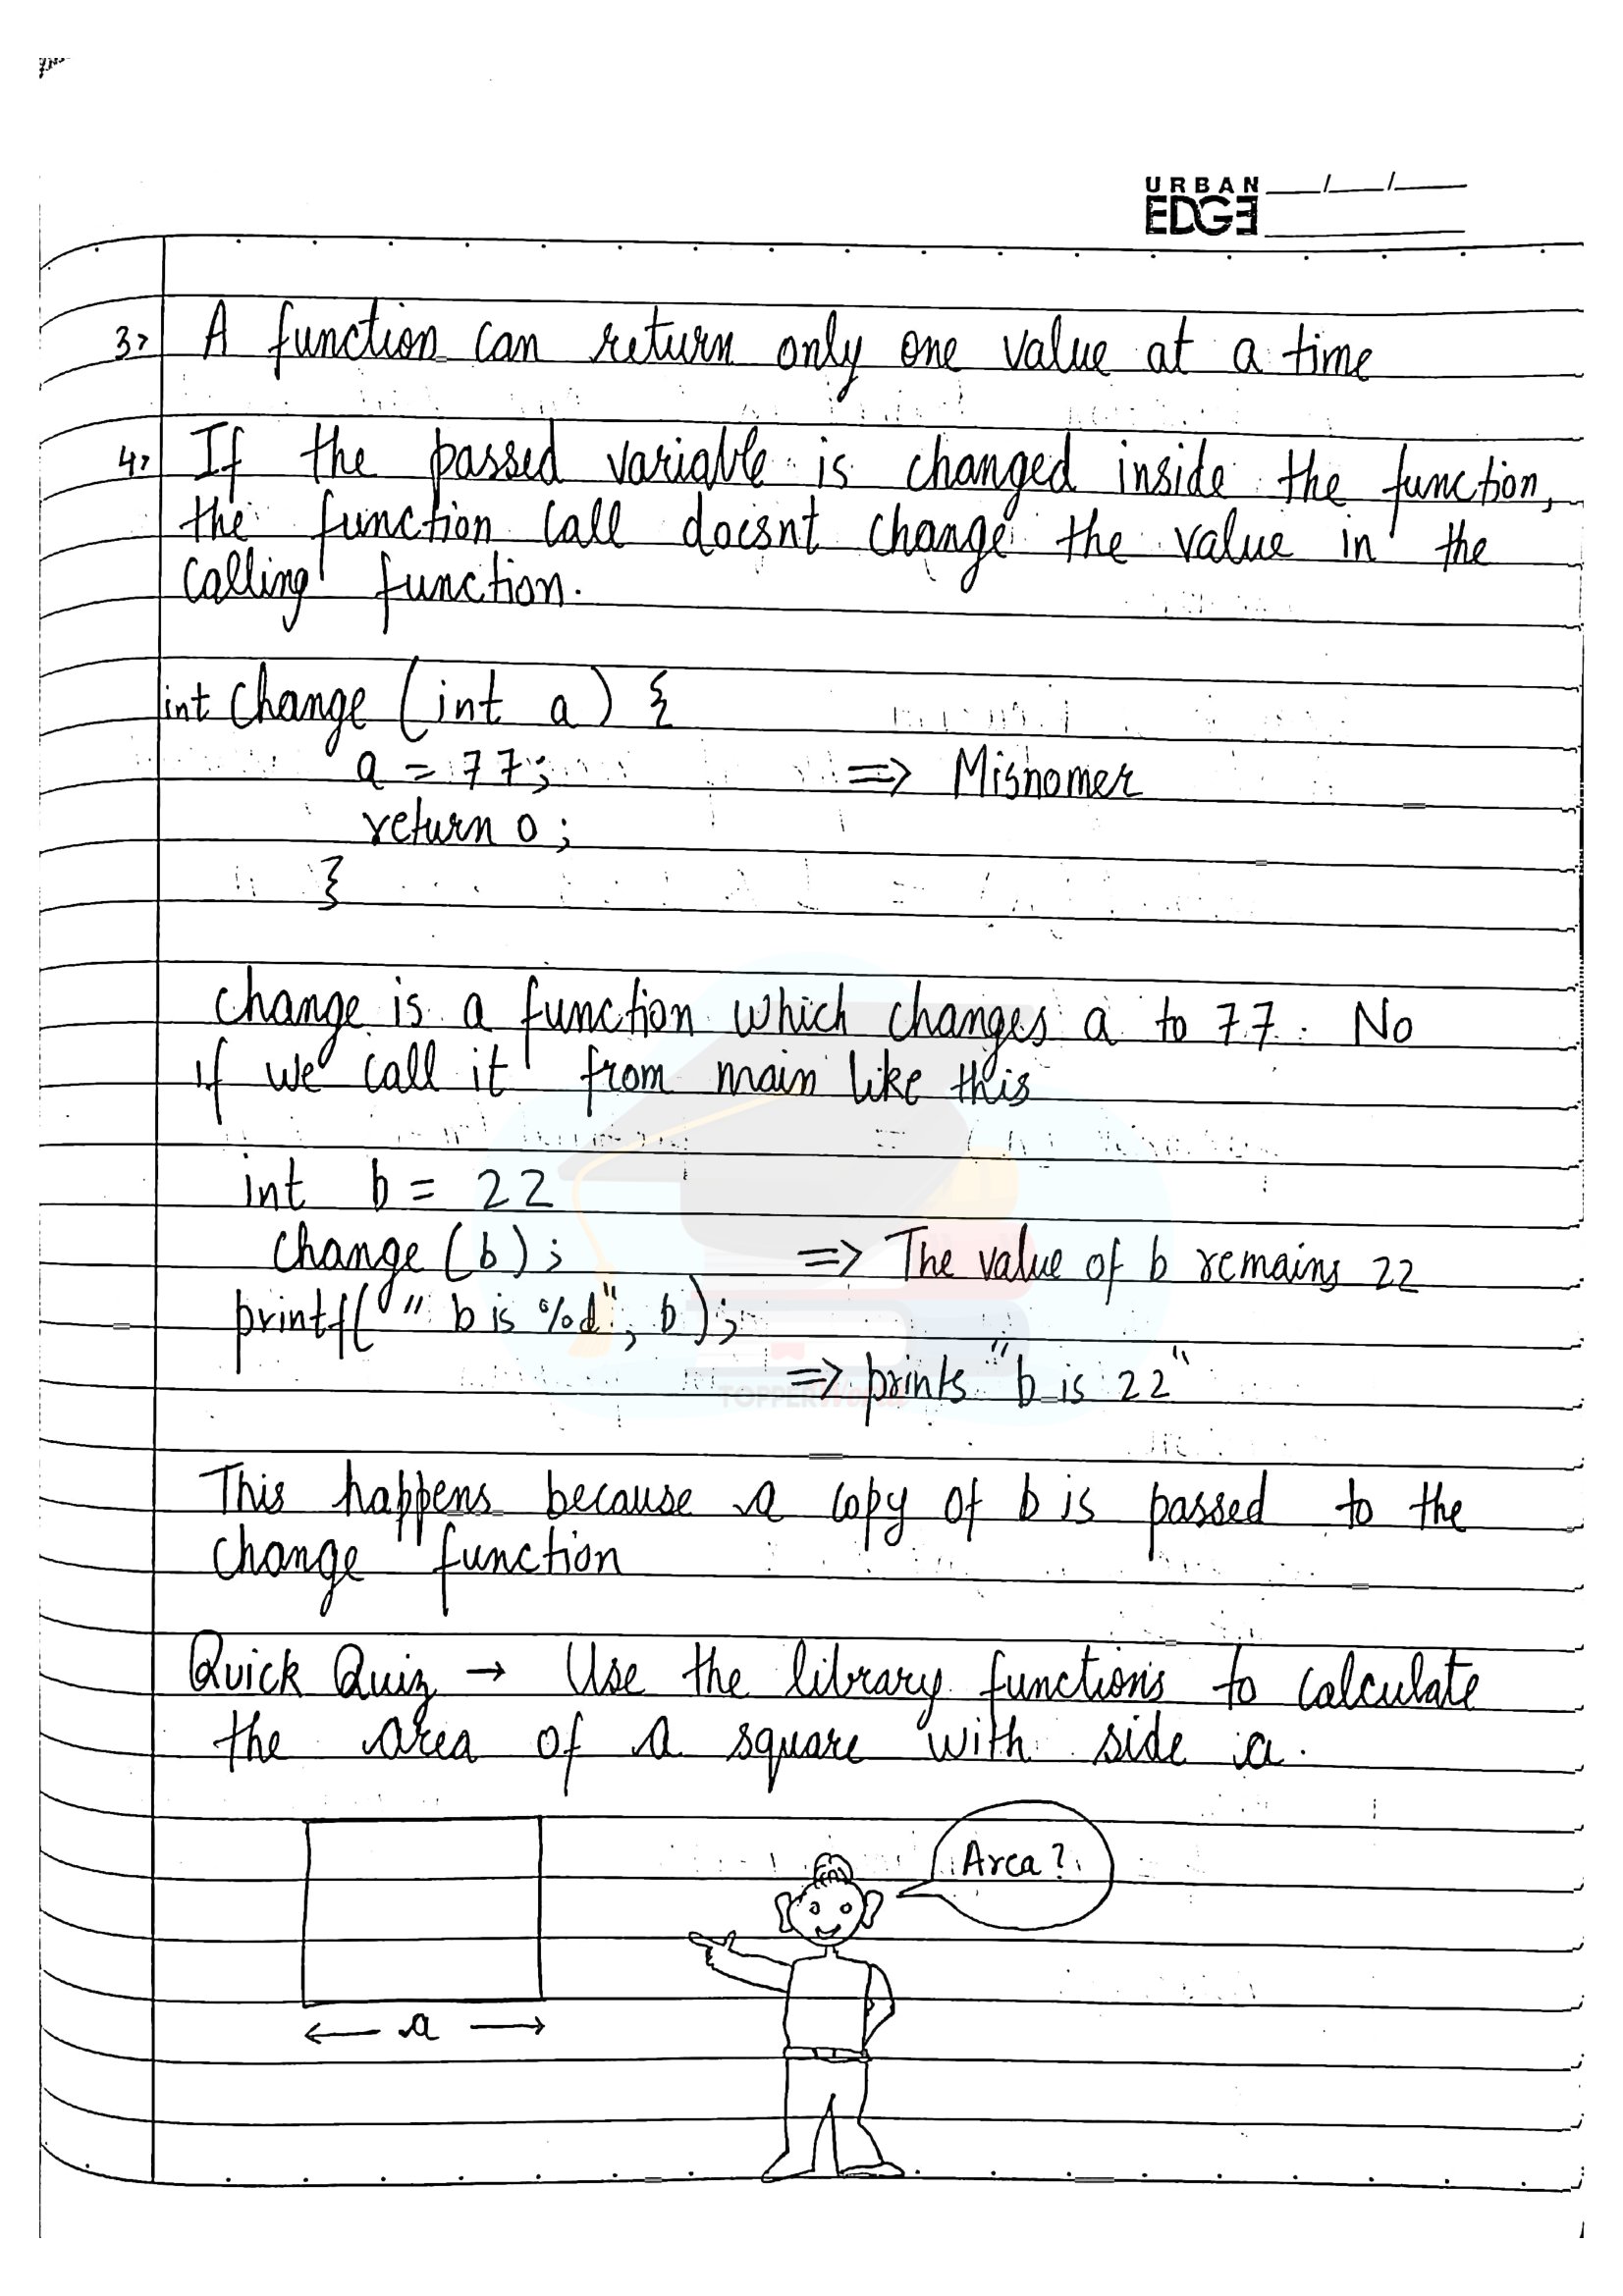 URBAN
EDGE
3> A function can return only one value at a time
4> If the passed variable is changed inside the function,
the function call doesnt change the value in the
calling function.
int change (int a) {
a = 77; => Misnomer
return 0;
}
change is a function which changes a to 77. No
if we call it from main like this
int b = 22
change (b); => The value of b remains 22
printf(" b is %d", b);
=> prints "b is 22"
TOPPERWorld
This happens because a copy of b is passed to the
change function
Quick Quiz → Use the library functions to calculate
the area of a square with side a.
Area?
← a →